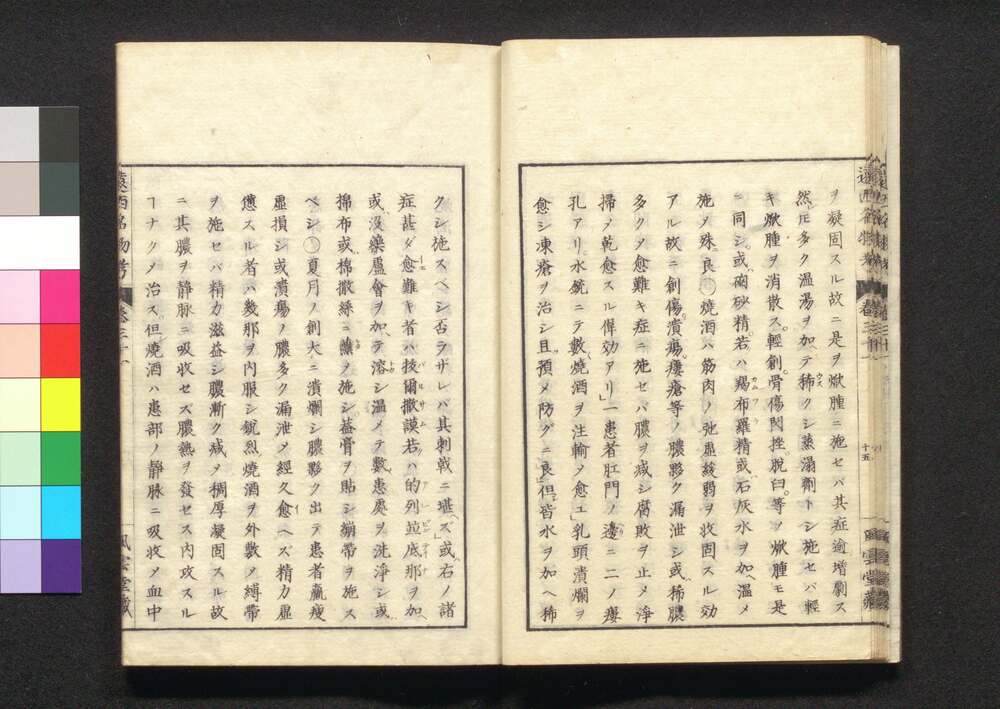 ヲ凝固スル故ニ是ヲ焮腫ニ施セバ其症逾増劇ス
然𪜈多ク温湯ヲ加テ稀クシ蒸溻劑トシ施セバ輕
キ焮腫ヲ消散ス。輕創。骨傷。閃挫。脱臼。等ノ焮腫モ是
ニ同シ。或ハ磠砂精。若ハ羯布羅精或ハ石灰水ヲ加ヘ温メ
施ヲ殊ニ良〇燒酒ハ筋肉ノ弛虚緩弱ヲ收固スル効
アル故ニ創傷。潰瘍。瘻瘡等ノ膿夥ク漏泄シ或ハ稀膿
多クメ愈難キ症ニ施セバ膿ヲ減シ腐敗ヲ止メ淨
掃メ乾愈スル偉効アリ」一患者肛門ノ邊ニ二ノ瘻
孔アリ。水銃ニテ數燒酒ヲ注輸メ愈ユ」乳頭潰爛ヲ
愈シ凍瘡ヲ治シ且預メ防グニ良」但シ皆水ヲ加ヘ稀
クシ施スベシ否ラザレバ其刺戟ニ堪ズ」或ハ右ノ諸
症甚ダ愈難キ者ハ抜爾撒謨若ハ的列並底那ヲ加ヘ
或ハ沒藥蘆會ヲ加ヘテ溶シ温メテ數患處ヲ洗淨シ或ハ
棉布或ハ棉撒絲ニ蘸メ施シ。蓋膏ヲ貼シ繃帶ヲ施ス
ベシ〇夏月ノ創大ニ潰爛シ膿夥ク出テ患者羸瘦
虚損シ或ハ潰瘍ノ膿多ク漏泄メ經久愈ヘズ精力虚
憊スル者ハ幾那ヲ内服シ鋭烈燒酒ヲ外敷メ縛帶
ヲ施セバ精力滋益シ膿漸ク减メ稠厚凝固スル故
ニ其膿ヲ静脉ニ吸收セズ膿熱ヲ發セス内攻スル
ヿナクメ治ス但シ燒酒ハ患部ノ静脉ニ吸收メ血中
遠西名物考
十五
風雲堂藏